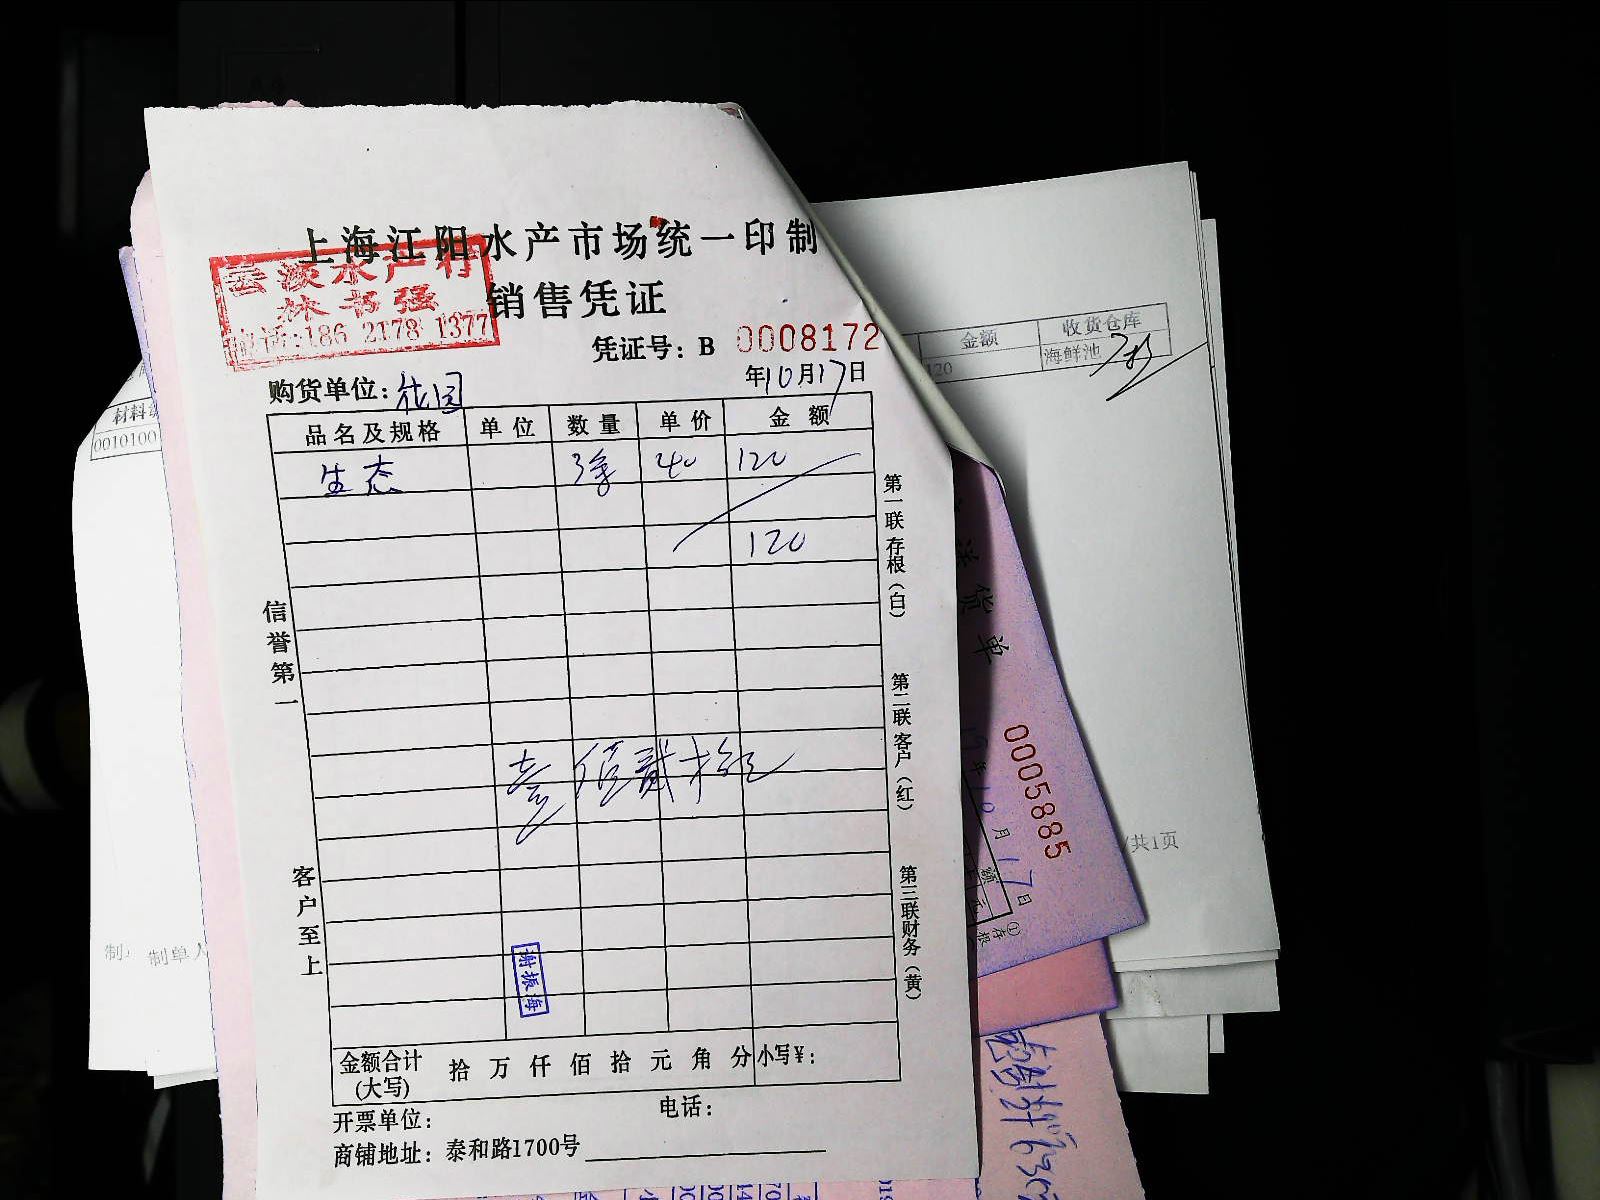 上海江阳水产市场统一印制
云淡水产行
林书强
电话:186 2178 1377
销售凭证
凭证号：B 0008172
购货单位：花园
年10月17日
品名及规格 单位 数量 单价 金额
生态 3条 40 120
120
壹佰贰拾元
信誉第一
客户至上
第一联存根（白）
第二联客户（红）
第三联财务（黄）
谢振海
金额合计(大写) 拾 万 仟 佰 拾 元 角 分 小写¥：
开票单位： 电话：
商铺地址：泰和路1700号
金额 收货仓库
120 海鲜池
材料
0010100
制单人
送货单
0005885
年10月17日
额
元
①存根
/共1页